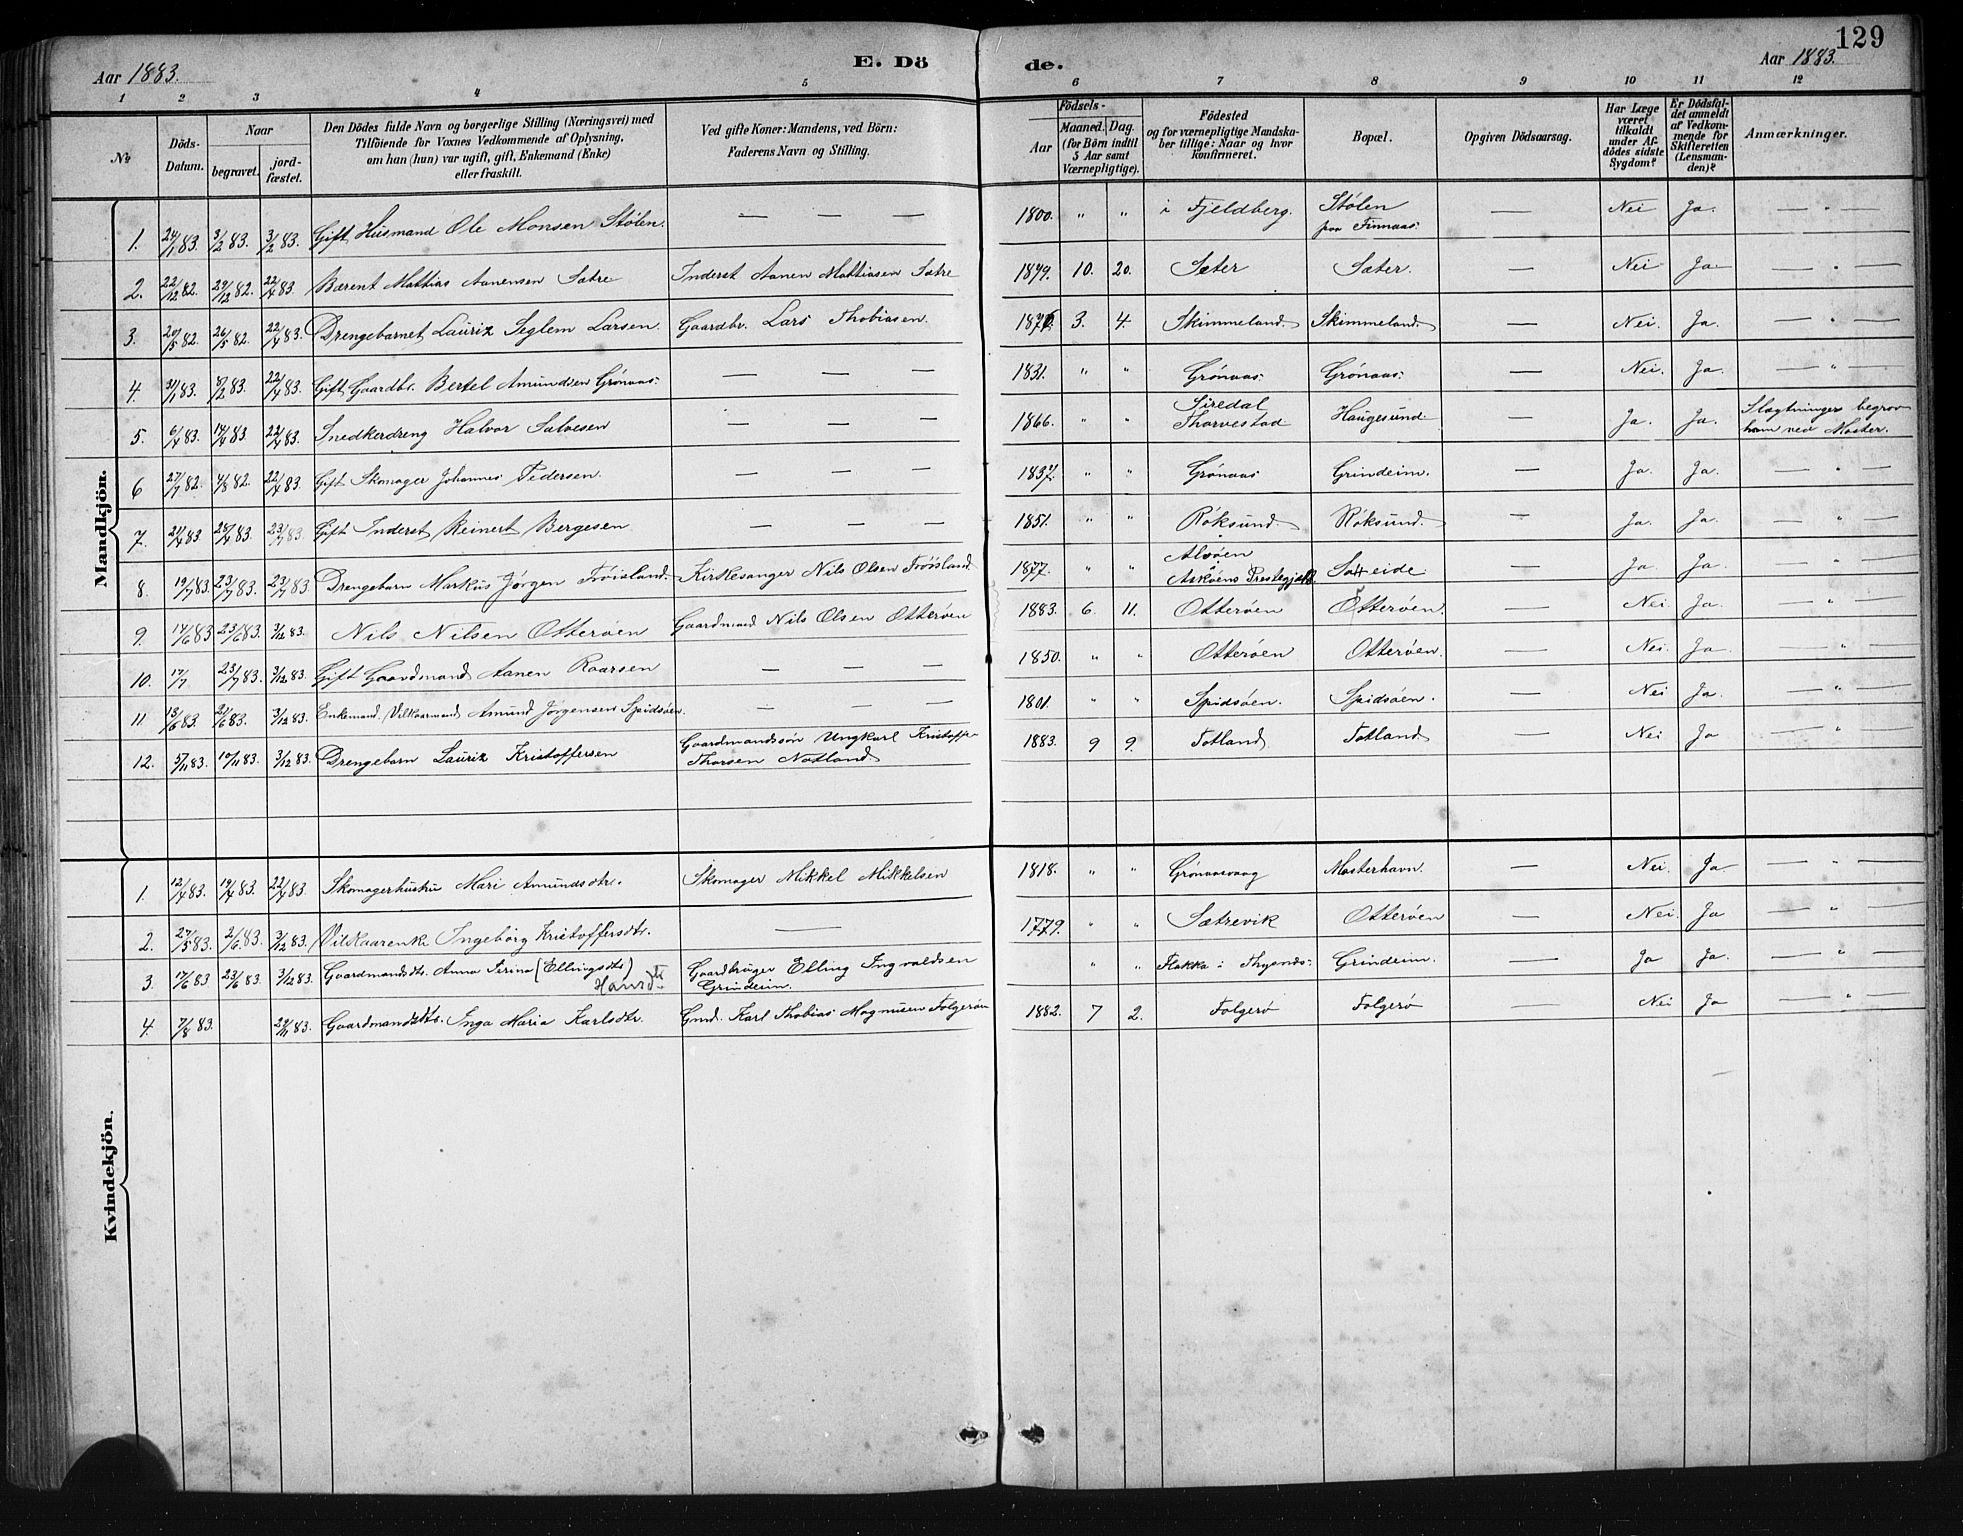 129
Aar 1883. E. Dö de. Aar 1883.
1 2 3 4 5 6 7 8 9 10 11 12
No
Döds-Datum.
Naar
begravet.
jord-fæstet.
Den Dödes fulde Navn og borgerlige Stilling (Næringsvei) med
Tilföiende for Voxnes Vedkommende af Oplysning,
om han (hun) var ugift, gift, Enkemand (Enke)
eller fraskilt.
Ved gifte Koner: Mandens, ved Börn:
Faderens Navn og Stilling.
Födsels-
Aar
Maaned. Dag.
(for Börn indtil
5 Aar samt
Værnepligtige).
Födested
og for værnepligtige Mandska-
ber tillige: Naar og hvor
konfirmeret.
Bopæl.
Opgiven Dödsaarsag.
Har Læge
været
tilkaldt
under Af-
dödes sidste
Sygdom?
Er Dödsfal-
det anmeldt
af Vedkom-
mende for
Skifteretten
(Lensman-
den)?
Anmærkninger.
Mandkjön.
1. 24/1 83. 3/2 83. 3/2 83. Gift Husmand Ole Monsen Stølen. — — — 1800. " " i Fjeldberg. Stølen paa Finnaas. — Nei Ja. — " —
2. 22/12 82. 29/12 82. 22/4 83. Bærent Mattias Aanensen Sætre Inderst Aanen Mattiasen Sætre 1879. 10. 20. Sæter Sæter. — Nei Ja — " —
3. 20/5 82. 26/5 82. 22/4 83. Drengebarnet Lauriz Seglem Larsen. Gaardbr. Lars Thobiasen. 1876. 3. 4. Skimmeland. Skimmeland. — Nei. Ja. — " —
4. 31/1 83. 8/2 83. 22/4 83. Gift Gaardbr. Bertel Amundsen Grønaas. — — — 1831. " " Grønaas Grønaas. — Nei. Ja. — " —
5. 6/4 83. 14/4 83. 22/4 83. Snedkerdreng Halvor Salvesen — — — 1866. " " Siredal Thorvestad Haugesund — Ja. Ja. Slægtninger begrov ham ved Moster.
6 27/7 82. 4/8 82. 22/4 83. Gift Skomager Johannes Pedersen. — — — 1837. " " Grønaas Grindeim. — Ja. Ja. — " —
7. 21/4 83 28/4 83. 23/7 83. Gift Inderst Reinert Bergesen — — — 1851. " " Røksund. Røksund. — Ja. Ja. — " —
8. 19/7 83. 23/7 83. 23/7 83. Drengebarn Markus Jørgen Frøisland. Kirkesanger Nils Olsen Frøisland. 1877. " " Alvøen Askøens Prestegjæld. Sotteide. — Ja Ja. — " —
9. 14/6 83 23/6 83. 3/12 83. Nils Nilsen Otterøen Gaardmand Nils Olsen Otterøen 1883. 6. 11. Otterøen Otterøen. — Nei Ja. — " —
10. 17/7 23/7 83. 3/12 83. Gift Gaardmand Aanen Roarsen — — — 1850. " " Otterøen Otterøen. — Nei. Ja. — " —
11. 13/6 83. 21/6 83. 3/12 83. Enkemand. Vilkaarmand Amund Jørgensen Spidsøen. — — — 1801. " " Spidsøen. Spidsøen. — Nei Ja — " —
12. 5/11 83. 10/11 83. 3/12 83. Drengebarn Lauriz Kristoffersen Gaardmandssøn Ungkarl Kristoffer Thorsen Notland 1883. 9 9. Totland Totland — Nei Ja — " —
Kvindekjön.
1. 12/4 83. 19/4 83. 22/4 83. Skomagerhustru Mari Amundsdtr. Skomager Mikkel Mikkelsen 1818. " " Grønaasvaag Mosterhavn. — Nei. Ja — " —
2. 27/5 83. 2/6. 83. 3/12 83. Vilkaarenke Ingeborg Kristoffersdtr. — 1779. " " Sætrevik Otterøen — Nei. Ja — " —
3. 17/6 83 23/6 83. 3/12 83. Gaardmandsdtr. Anna Serina (Ellingsdtr) Hansdtr Gaardbruger Elling Ingvaldsen Grindeim. " " Flakka i Thysnæs. Grindeim. — Ja Ja. — " —
4. 7/8 83. 29/11 83. Gaardmandsdtr. Inga Maria Karlsdtr. Gmd. Karl Thobias Magnusen Folgerøen 1882. 7 2. Folgerø Folgerø — Nei Ja — " —